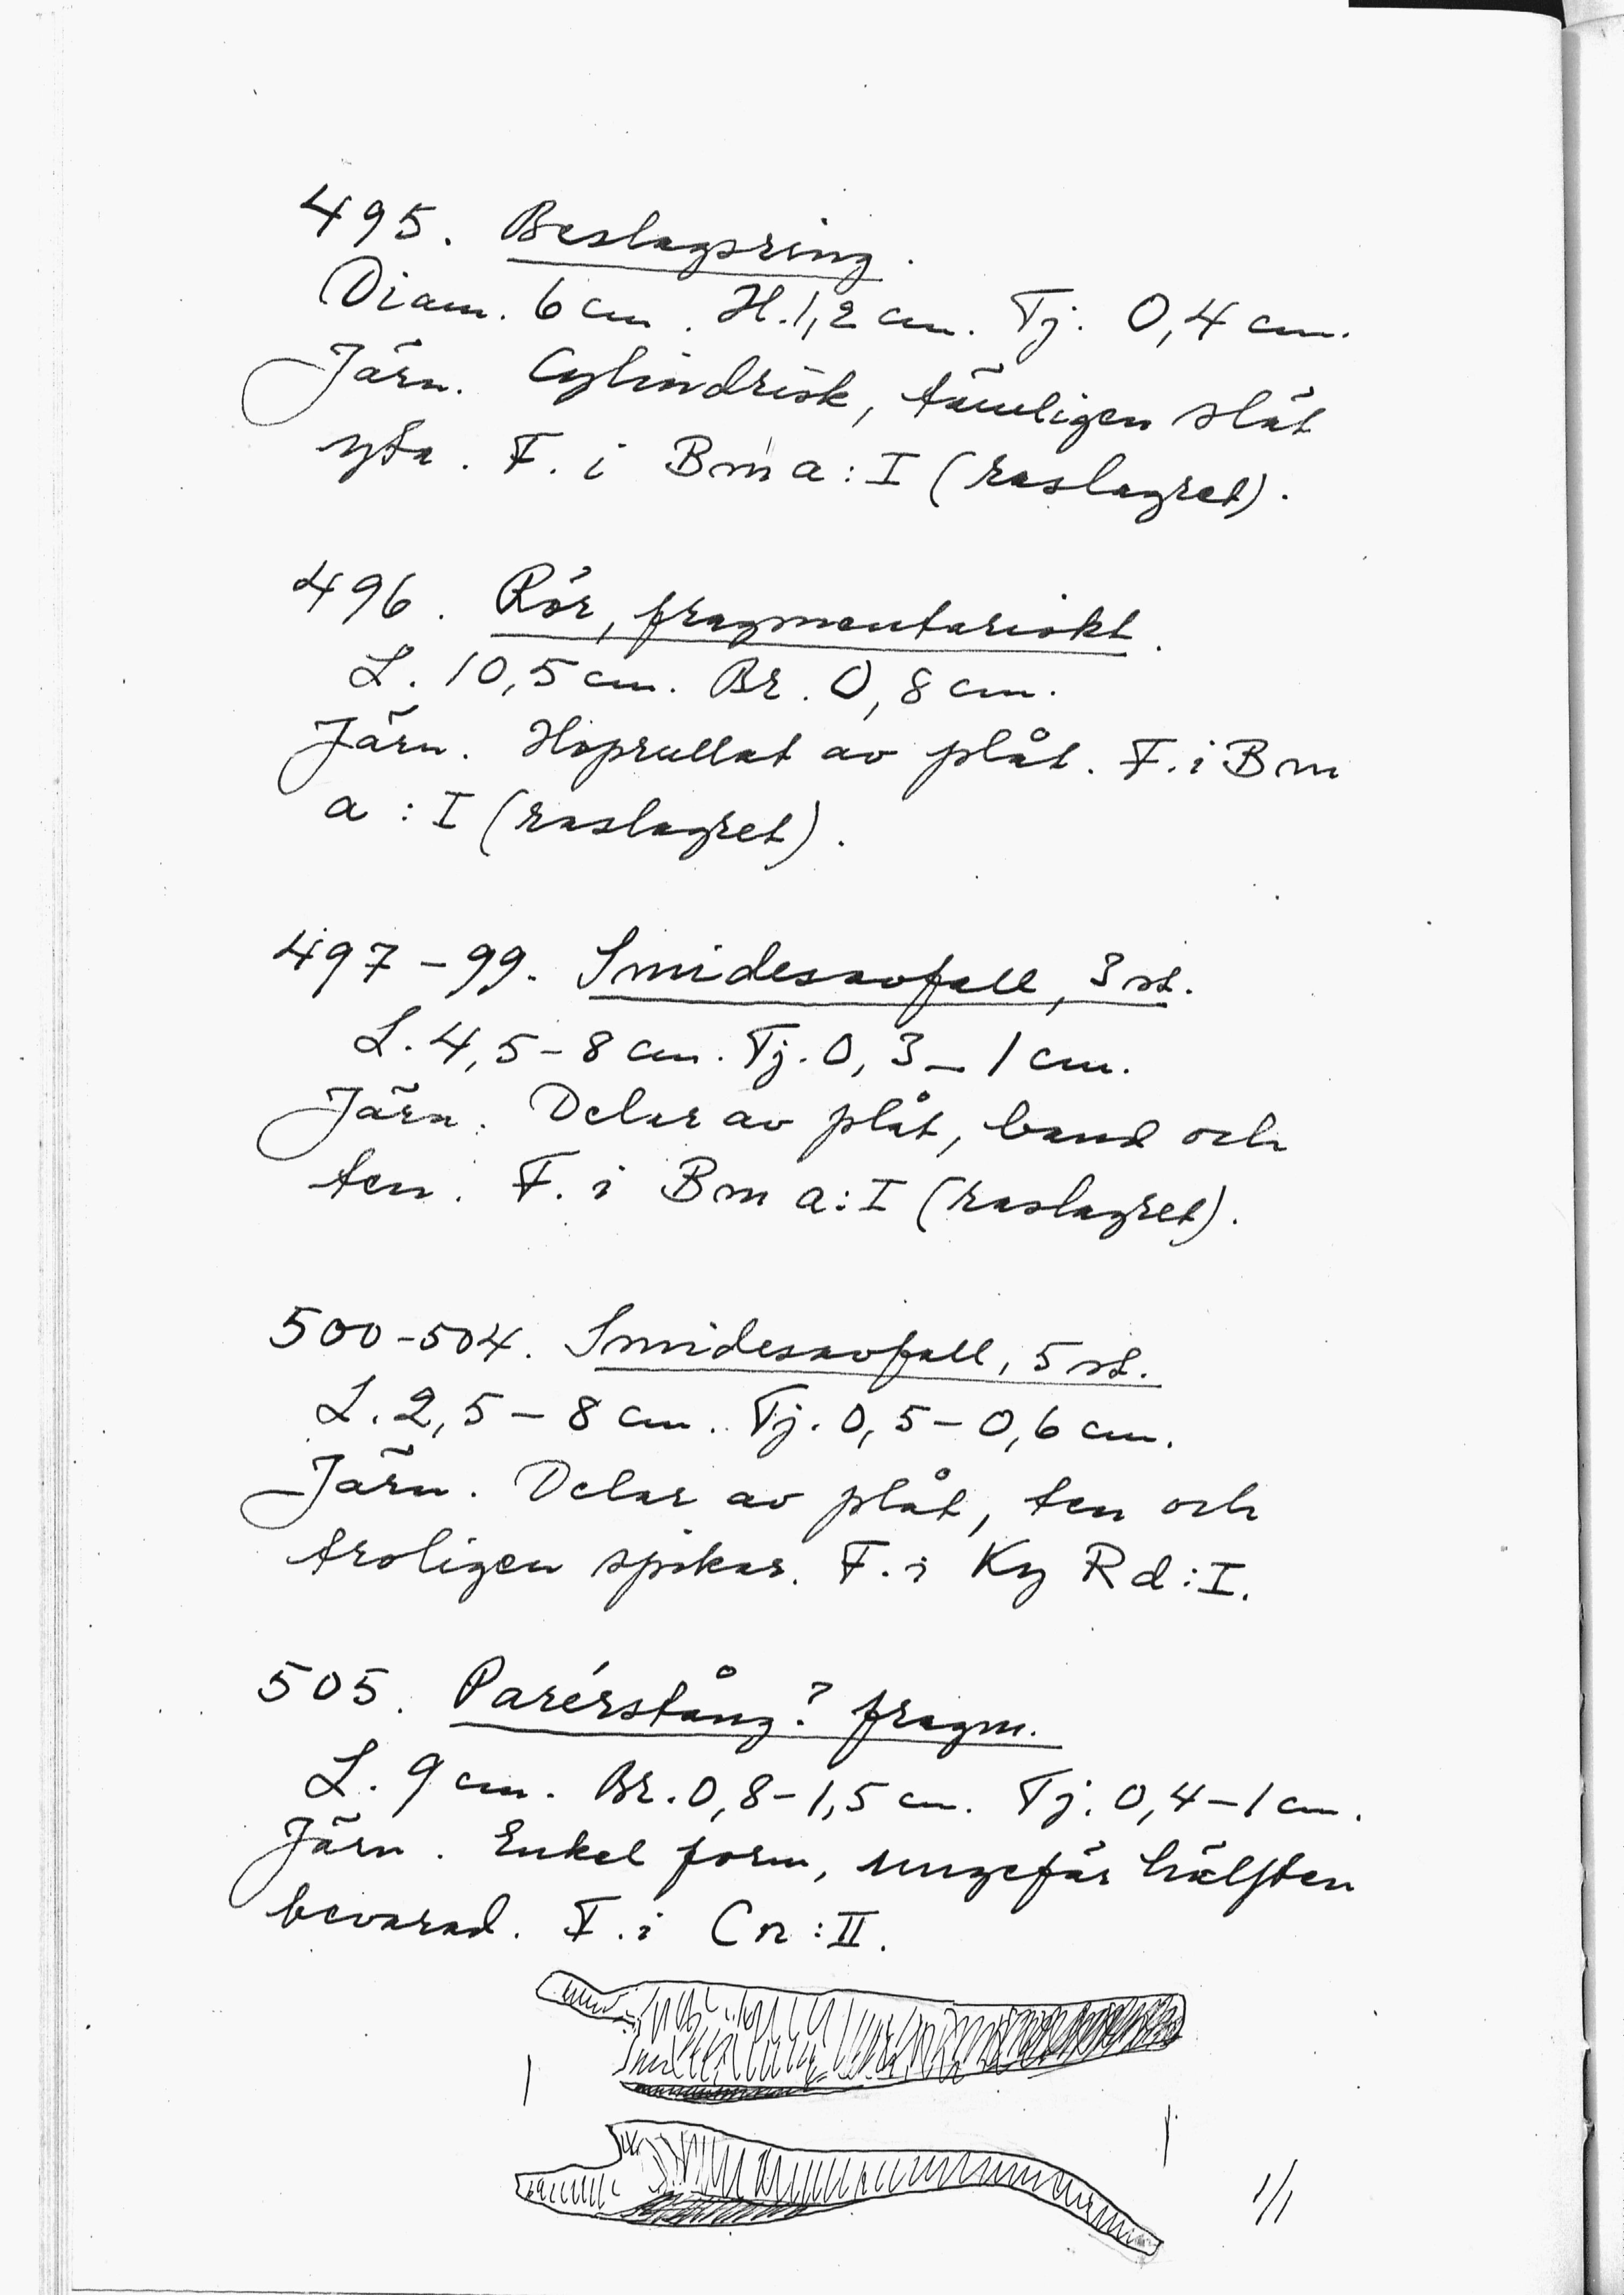 495. Beslagsring.
Diam. 6 cm. H. 1,2 cm. Tj. 0,4 cm.
Järn. Cylindrisk, tämligen slät
yta. F. i Bm a: I (raslagret).
496. Rör, fragmentariskt.
L. 10,5 cm. Br. 0,8 cm.
Järn. Hoprullat av plåt. F. i Bm
a: I (raslagret).
497-99. Smidesavfall, 3 st.
L. 4,5-8 cm. Tj. 0,3-1 cm.
Järn. Delar av plåt, band och
ten. F. i Bm a: I (raslagret).
500-504. Smidesavfall, 5 st.
L. 2,5-8 cm. Tj. 0,5-0,6 cm.
Järn. Delar av plåt, ten och
troligen spikar. F. i Ky Rd: I.
505. Parérstång? fragm.
L. 9 cm. Br. 0,8-1,5 cm. Tj. 0,4-1 cm.
Järn. Enkel form, ungefär hälften
bevarad. F. i Cn: II.
1/1